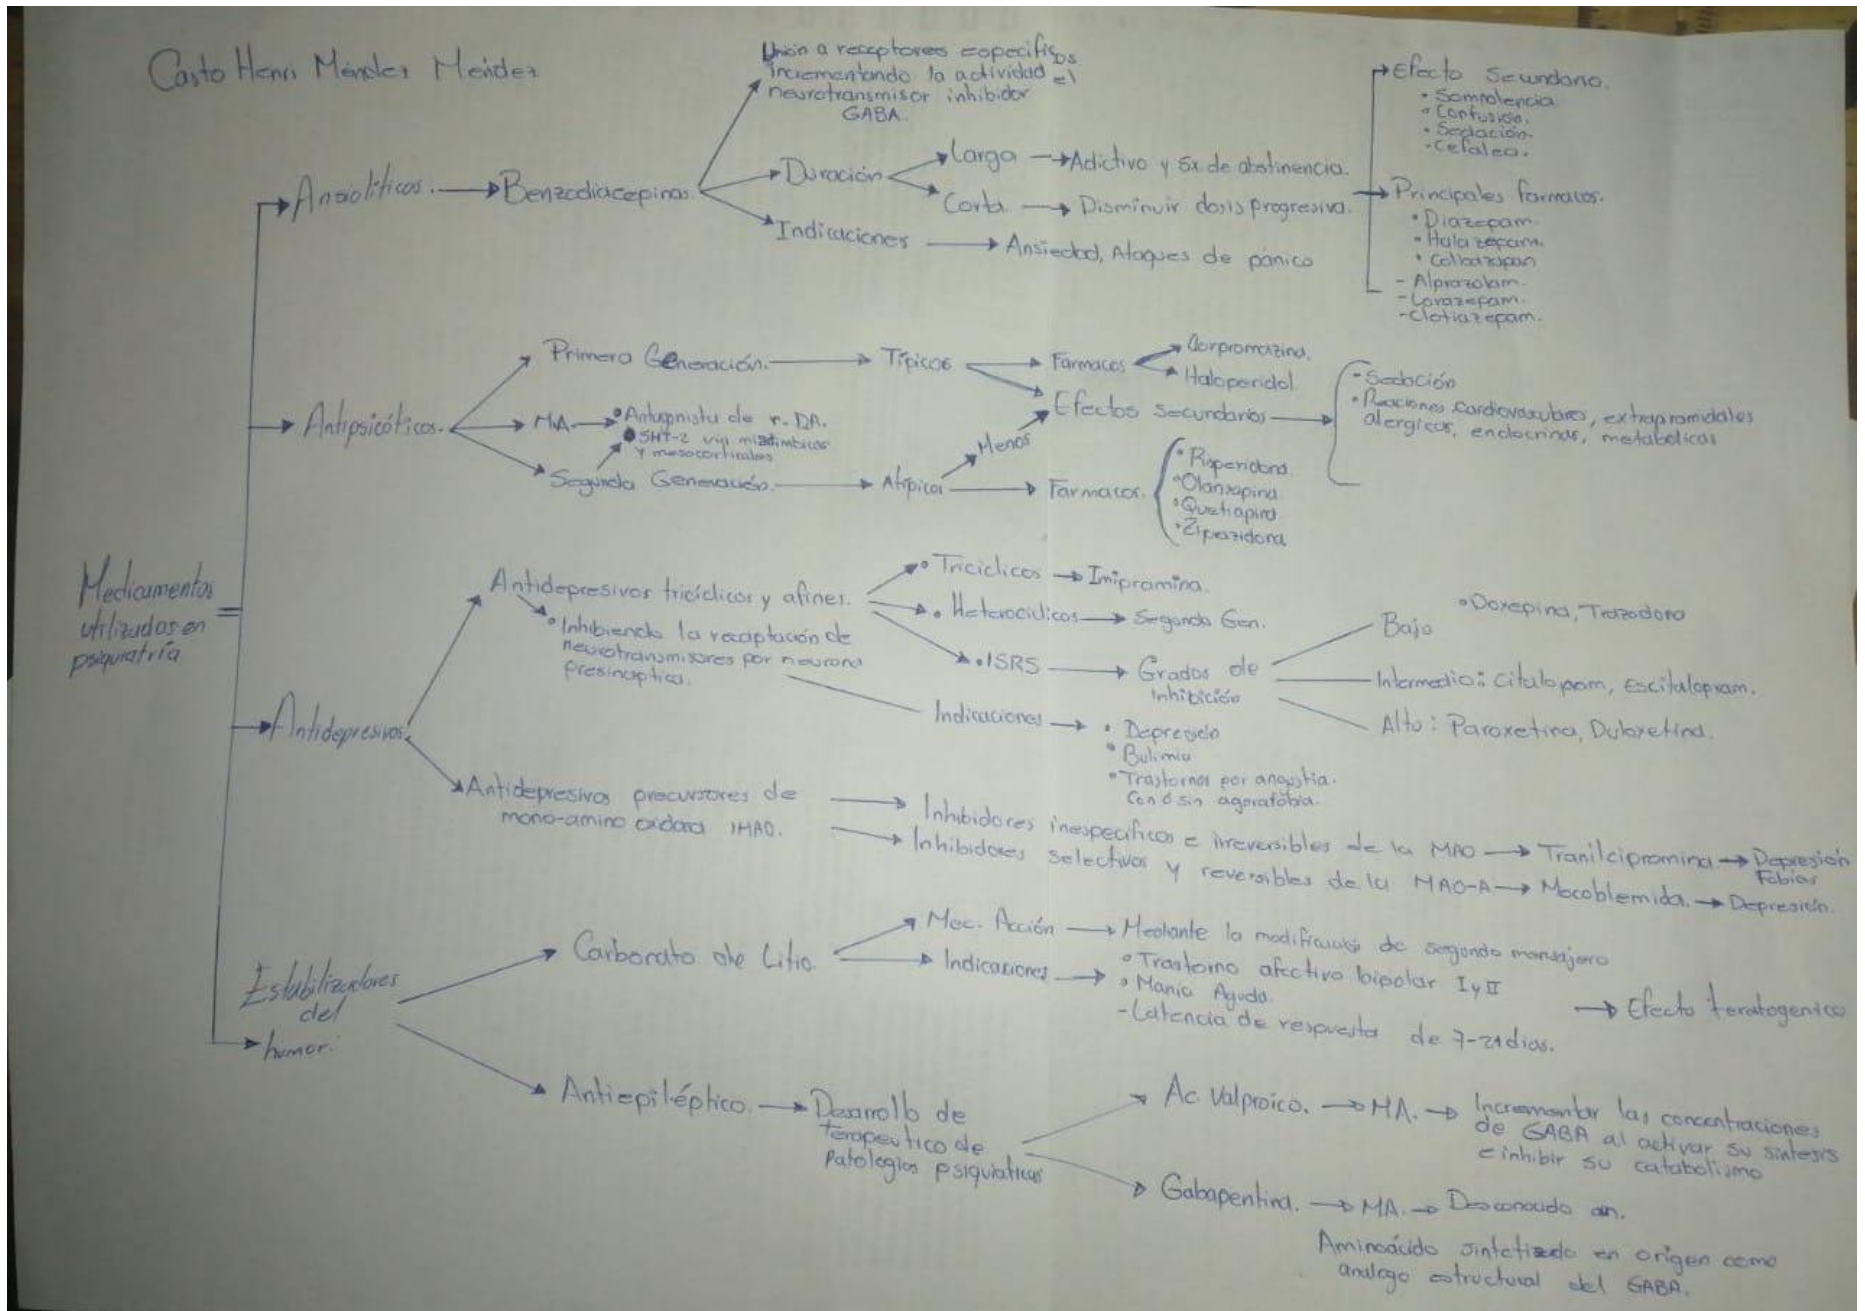 Casto Henri Méndez Méndez
Unión a receptores especificos
incrementando la actividad el
neurotransmisor inhibidor
GABA.
Ansioliticos.
Benzodiacepinas.
Duración
Larga
Adictivo y Sx. de abstinencia.
Corta
Disminuir dosis progresiva.
Indicaciones
Ansiedad, Ataques de pánico
Efecto Secundario.
• Somnolencia
• Confusión.
• Sedación.
• Cefalea.
Principales farmacos.
• Diazepam.
• Halazepam.
- Alprazolam.
- Lorazepam.
- Clotiazepam.
Antipsicóticos.
Primera Generación.
Típicos
Farmacos
Clorpromazina.
Haloperidol
Efectos secundarios
- Sedación
• Reaciones cardiovasculares, extrapiramidales
alergicas, endocrinas, metabolicas
MA.
• Antagonista de r-DA.
• 5HT-2 via
y mesocorticales
Segunda Generación.
Atípicos
Menos
Farmacos.
• Risperidona
• Olanzapina
• Quetiapina
• Ziprazidona
Medicamentos
utilizados en
psiquiatría
Antidepresivos.
Antidepresivos tricíclicos y afines.
• Inhibiendo la recaptación de
neurotransmisores por neurona
presinaptica.
• Triciclicos
Imipramina.
• Heterociclicos
Segunda Gen.
• ISRS
Grados de
inhibición
Bajo
• Doxepina, Trazodona
Intermedio: Citalopram, Escitalopram.
Alto: Paroxetina, Duloxetina.
Indicaciones
• Depresión
• Bulimia
• Trastornos por angustia.
con ó sin agorafobia.
Antidepresivos precursores de
mono-amino oxidasa IMAO.
Inhibidores inespecificos e irreversibles de la MAO
Tranilcipromina
Depresión
Fobias
Inhibidores selectivos y reversibles de la MAO-A
Mocoblemida.
Depresión.
Estabilizadores
del
humor.
Carbonato de Litio.
Mec. Acción
Mediante la modificación de segundo mensajero
Indicaciones
• Trastorno afectivo bipolar I y II
• Mania Aguda.
- Latencia de respuesta de 7-21 dias.
Efecto teratogenico
Antiepiléptico.
Desarrollo de
terapeutico de
patologias psiquiaticas
Ac. Valproico.
MA.
Incrementar las concentraciones
de GABA al activar su sintesis
e inhibir su catabolismo
Gabapentina.
MA.
Desconocido an.
Aminoácido sintetizado en origen como
analogo estructural del GABA.